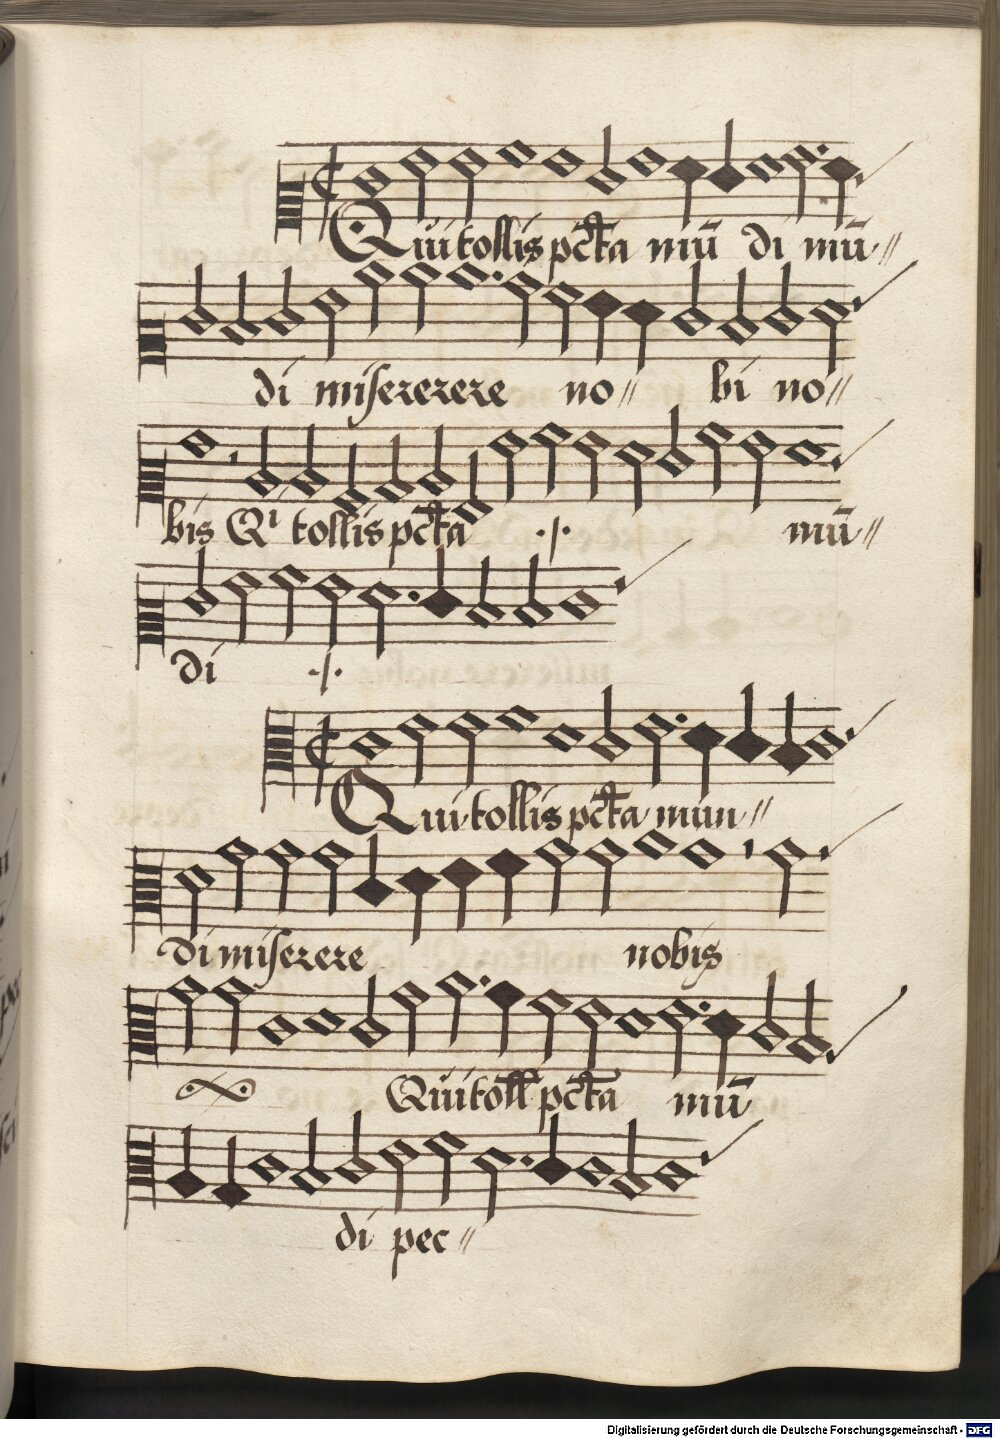 Qui tollis pctā mū di mū
di misererere no bi no
bis Qi tollis pctā ./. mū
di ./.
Qui tollis pctā mun
di miserere nobis
Qui toll pctā mū
di pec
Digitalisierung gefördert durch die Deutsche Forschungsgemeinschaft - DFG